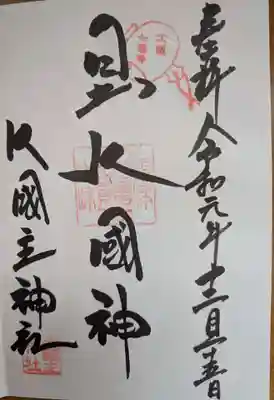 奉拝 令和元年十二月十五日
日出大國神
大國主神社